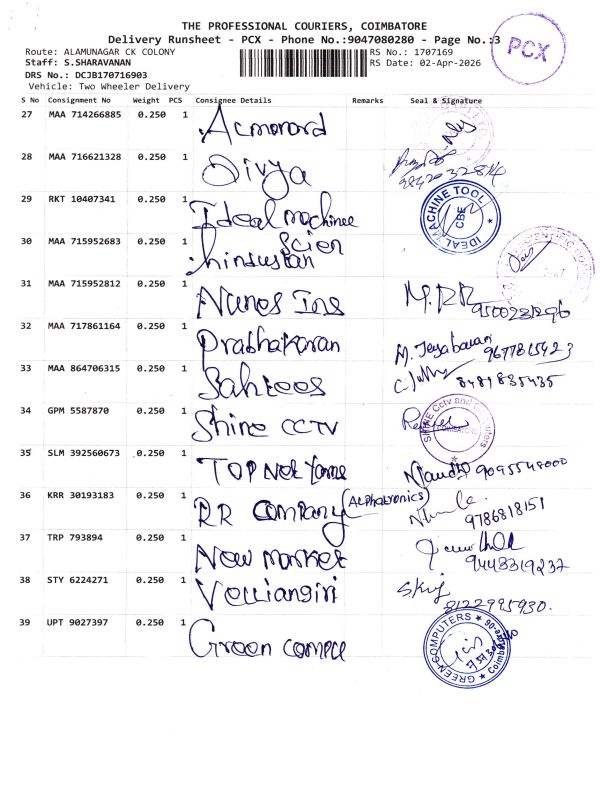 THE PROFESSIONAL COURIERS, COIMBATORE
Delivery Runsheet - PCX - Phone No.:9047080280 - Page No.:3
PCX
Route: ALAMUNAGAR CK COLONY RS No.: 1707169
Staff: S.SHARAVANAN RS Date: 02-Apr-2026
DRS No.: DCJB170716903
Vehicle: Two Wheeler Delivery
S No Consignment No Weight PCS Consignee Details Remarks Seal & Signature
27 MAA 714266885 0.250 1
28 MAA 716621328 0.250 1 Divya
29 RKT 10407341 0.250 1 Ideal machinee IDEAL MACHINE TOOL CBE
30 MAA 715952683 0.250 1 hindustan Scien
31 MAA 715952812 0.250 1 M.RR
32 MAA 717861164 0.250 1 Prabhakaran M. Jeyabavani 9677815423
33 MAA 864706315 0.250 1 8489835435
34 GPM 5587870 0.250 1 Shine CCTV SHINE Cctv and Computers
35 SLM 392560673 0.250 1 TOP Net 9095548000
36 KRR 30193183 0.250 1 RR Company (ALPHATRONICS) 9786818151
37 TRP 793894 0.250 1 New market 9443319237
38 STY 6224271 0.250 1 Velliangiri 8122995930.
39 UPT 9027397 0.250 1 Green compu GREEN COMPUTERS